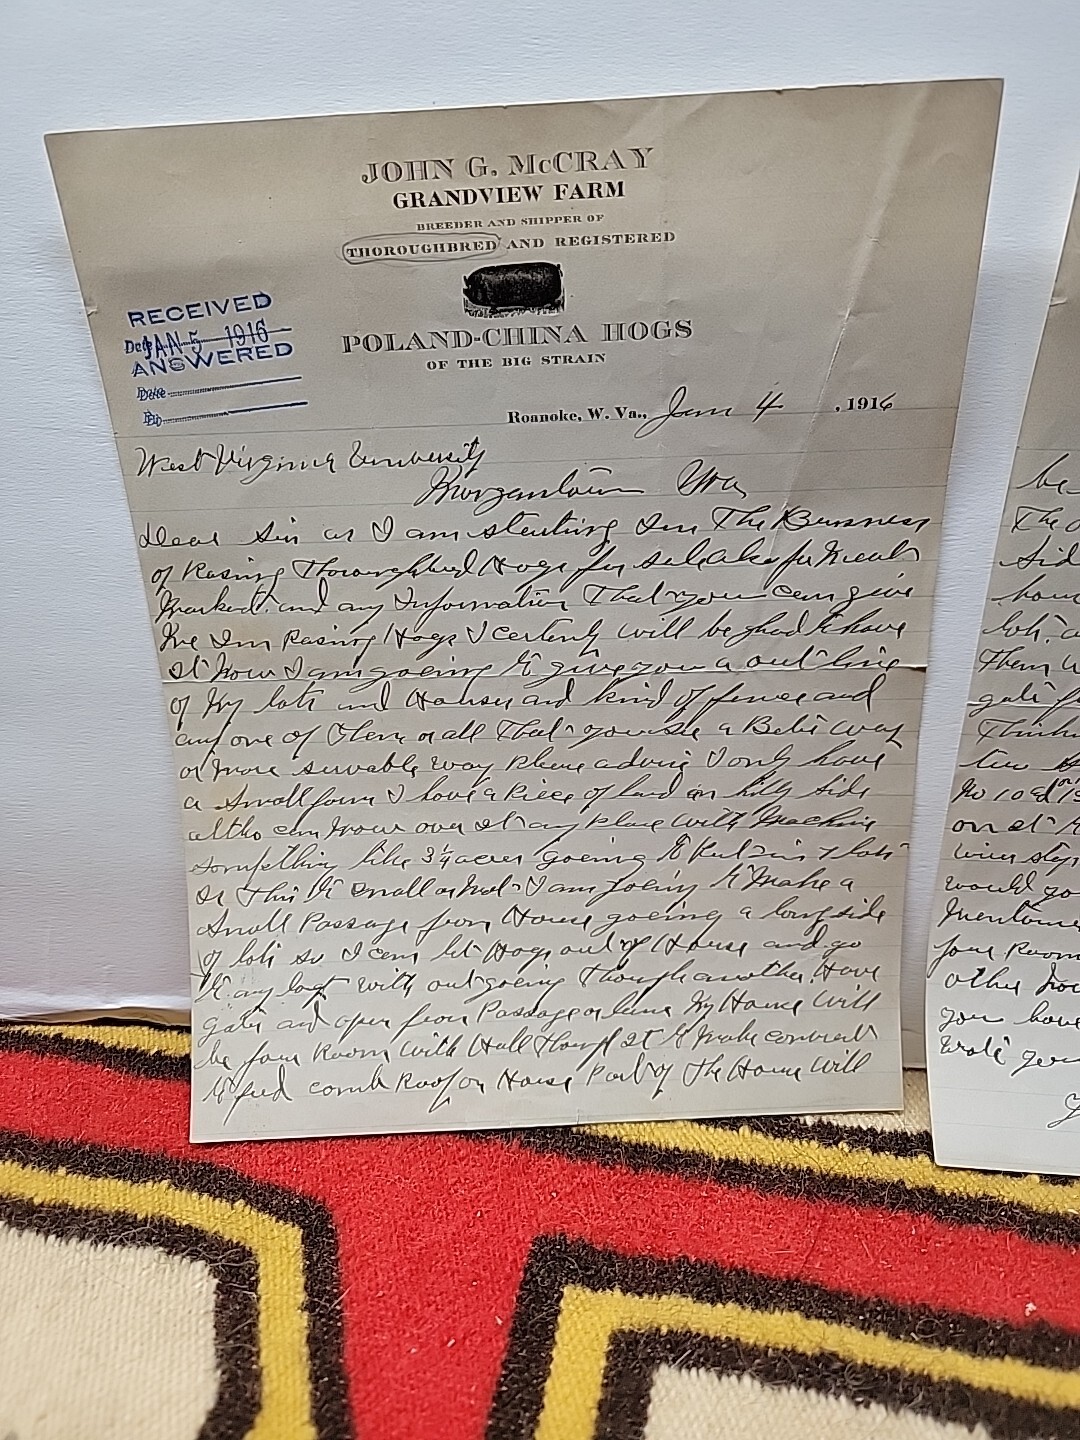 JOHN G. McCRAY
GRANDVIEW FARM
BREEDER AND SHIPPER OF
THOROUGHBRED AND REGISTERED
POLAND-CHINA HOGS
OF THE BIG STRAIN
RECEIVED
Date JAN 5 1916
ANSWERED
Date
By
Roanoke, W. Va., Jan 4, 1916
West Virginia University
Morgantown Wva
Dear Sir as I am starting Inn The Bussness
of Rasing Thoroughbred Hogs for sale also for Meat
Market and any Information That you can give
Me Inn Rasing Hogs I certenly will be glad to have
it Now I am goeing to give you a out line
of My lots and Houses and kind of fence and
any one of Them or all That you see a Beter way
or More servable way please advise I only have
a small farm I have a Piece of land on hilly side
altho can mow over it any place with Machine
something like 3 1/4 acres goeing to Put in 7 lots
is This to small or Not I am goeing to Make a
small Passage from House goeing a long side
of lots so I can let Hogs out of House and go
to any lot with out goeing Though another. Have
gates and open from Passage or lane My House will
be four Room with Hall Though it to Make convenient
to feed comb Roof on House Part of The House will
be
The
sid
hous
lots
Them
gate
Think
two
No 10
on it
wires
would yo
Mentione
four Room
other
you have